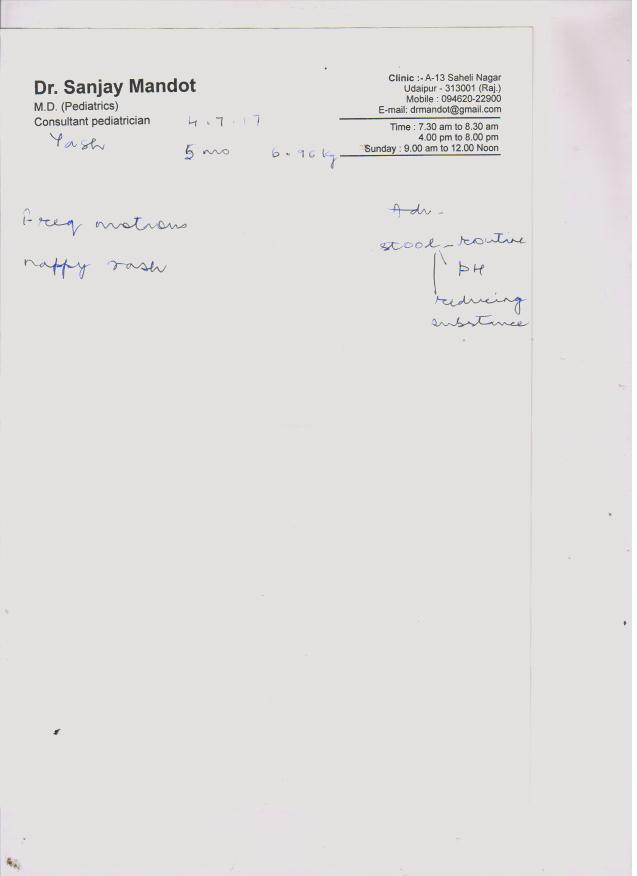 Dr. Sanjay Mandot
M.D. (Pediatrics)
Consultant pediatrician
Clinic :- A-13 Saheli Nagar
Udaipur - 313001 (Raj.)
Mobile : 094620-22900
E-mail: drmandot@gmail.com
Time : 7.30 am to 8.30 am
4.00 pm to 8.00 pm
Sunday : 9.00 am to 12.00 Noon
4.7.17
Yash 5 mo 6.96 kg
Freq motions
nappy rash
Adv -
stool - routine
PH
reducing
substance